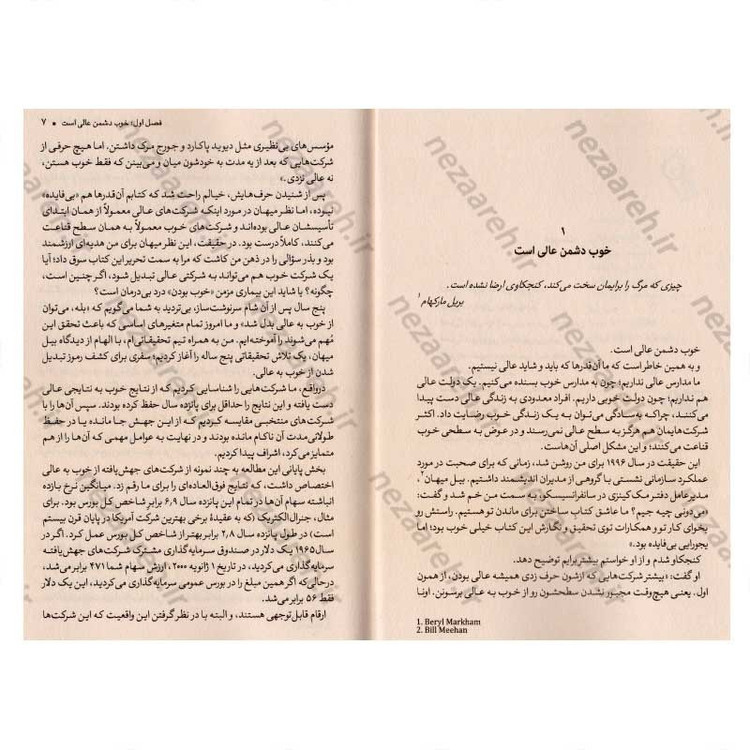 ۱
خوب دشمن عالی است
چیزی که مرگ را برایمان سخت می‌کند، کنجکاوی ارضا نشده است.
بریل مارکهام ۱
خوب دشمن عالی است.
و به همین خاطر است که ما آن‌قدرها که باید و شاید عالی نیستیم.
ما مدارس عالی نداریم؛ چون به مدارس خوب بسنده می‌کنیم. یک دولت عالی
هم نداریم؛ چون دولت خوبی داریم. افراد معدودی به زندگی عالی دست پیدا
می‌کنند، چراکه به‌سادگی می‌توان به یک زندگی خوب رضایت داد. اکثر
شرکت‌هایمان هم هرگز به سطح عالی نمی‌رسند و در عوض به سطحی خوب
قناعت می‌کنند؛ و این مشکل اصلی آن‌هاست.
این حقیقت در سال ۱۹۹۶ برای من روشن شد، زمانی که برای صحبت در مورد
عملکرد سازمانی نشستی با گروهی از مدیران اندیشمند داشتیم. بیل میهان۲،
مدیرعامل دفتر مک‌کینزی در سانفرانسیسکو به سمت من خم شد و گفت:
«می‌دونی چیه جیم؟ ما عاشق کتاب ساختن برای ماندن تو هستیم. راستش رو
بخوای کار تو و همکارات توی تحقیق و نگارش این کتاب خیلی خوب بود؛ اما
یجورایی بی‌فایده بود.»
کنجکاو شدم و از او خواستم بیشتر برایم توضیح دهد.
او گفت: «بیشتر شرکت‌هایی که ازشون حرف زدی همیشه عالی بودن، از همون
اول. یعنی هیچ‌وقت مجبور نشدن سطحشون رو از خوب به عالی برسونن. اونا
1. Beryl Markham
2. Bill Meehan
فصل اول؛ خوب دشمن عالی است ■ ۷
مؤسس‌های بی‌نظیری مثل دیوید پاکارد و جورج مرک داشتن. اما هیچ حرفی از
شرکت‌هایی که بعد از یه مدت به خودشون میان و می‌بینن که فقط خوب هستن،
نه عالی نزدی.»
پس از شنیدن حرف‌هایش، خیالم راحت شد که کتابم آن‌قدرها هم «بی‌فایده»
نبوده، اما نظر میهان در مورد اینکه شرکت‌های عالی معمولاً از همان ابتدای
تأسیسشان عالی بوده‌اند و شرکت‌های خوب معمولاً به همان سطح قناعت
می‌کنند، کاملاً درست بود. در حقیقت، این نظر میهان برای من هدیه‌ای ارزشمند
بود و بذر سؤالی را در ذهن من کاشت که مرا به سمت تحریر این کتاب سوق داد؛ آیا
یک شرکت خوب هم می‌تواند به شرکتی عالی تبدیل شود، اگر چنین است،
چگونه؟ یا شاید این بیماری مزمن «خوب بودن» درد بی‌درمان است؟
پنج سال پس از آن شام سرنوشت‌ساز، بی‌تردید به شما می‌گویم که «بله، می‌توان
از خوب به عالی بدل شد» و ما امروز تمام متغیرهای اساسی که باعث تحقق این
مُهم می‌شوند را آموخته‌ایم. من به همراه تیم تحقیقاتی‌ام، با الهام از دیدگاه بیل
میهان، یک تلاش تحقیقاتی پنج ساله را آغاز کردیم؛ سفری برای کشف رموز تبدیل
شدن از خوب به عالی.
درواقع، ما شرکت‌هایی را شناسایی کردیم که از نتایج خوب به نتایجی عالی
دست یافته و این نتایج را حداقل برای پانزده سال حفظ کرده بودند. سپس آن‌ها را با
شرکت‌های منتخبی مقایسه کردیم که از این جهش جا مانده یا در حفظ
طولانی‌مدت آن ناکام مانده بودند و در نهایت به عوامل مهمی که آن‌ها را از هم
متمایز می‌کرد، اشراف پیدا کردیم.
بخش پایانی این مطالعه به چند نمونه از شرکت‌های جهش‌یافته از خوب به عالی
اختصاص داشت، که نتایج فوق‌العاده‌ای را برای ما رقم زد. میانگین نرخ بازده
انباشته سهام آن‌ها در تمام این پانزده سال ۶٫۹ برابر شاخص کل بورس بود. برای
مثال، جنرال‌الکتریک (که به عقیدهٔ برخی بهترین شرکت آمریکا در پایان قرن بیستم
است) در طول پانزده سال ۲٫۸ برابر بهتر از شاخص کل بورس عمل کرد. اگر در
سال ۱۹۶۵ یک دلار در صندوق سرمایه‌گذاری مشترک شرکت‌های جهش‌یافته
سرمایه‌گذاری می‌کردید، در تاریخ ۱ ژانویه ۲۰۰۰، ارزش سهام شما ۴۷۱ برابر می‌شد،
درحالی‌که اگر همین مبلغ را در بورس عمومی سرمایه‌گذاری می‌کردید، این یک دلار
فقط ۵۶ برابر می‌شد.
ارقام قابل‌توجهی هستند، و البته با در نظر گرفتن این واقعیت که این شرکت‌ها
nezaareh.ir